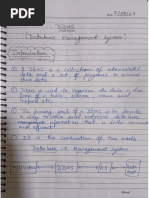 Date 7/08/24
DBMS
(Database Management System)
Introduction
① A DBMS is a collection of interrelated data and a set of programs to access that data.
② DBMS is used to organize the data in the form of a table, schema, views, report etc.
③ The primary goal of a DBMS is to provide a way to store and retrieve database information that is both convenient and efficient.
④ It is the combination of two words
Database + Management System
DBMS
OS